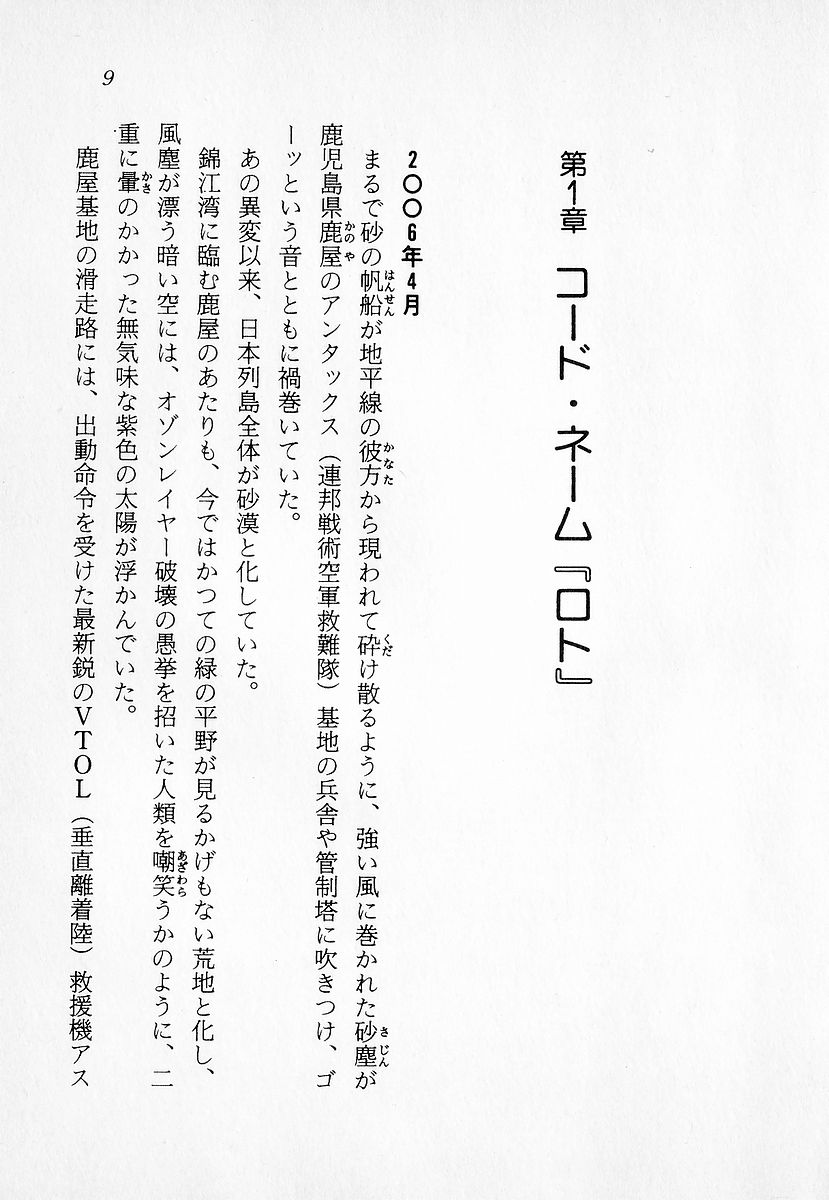 9
第1章 コード・ネーム『ロト』
2〇〇6年4月
まるで砂の帆船が地平線の彼方から現われて砕け散るように、強い風に巻かれた砂塵が
鹿児島県鹿屋のアンタックス（連邦戦術空軍救難隊）基地の兵舎や管制塔に吹きつけ、ゴ
ーッという音とともに禍巻いていた。
あの異変以来、日本列島全体が砂漠と化していた。
錦江湾に臨む鹿屋のあたりも、今ではかつての緑の平野が見るかげもない荒地と化し、
風塵が漂う暗い空には、オゾンレイヤー破壊の愚挙を招いた人類を嘲笑うかのように、二
重に暈のかかった無気味な紫色の太陽が浮かんでいた。
鹿屋基地の滑走路には、出動命令を受けた最新鋭のVTOL（垂直離着陸）救援機アス